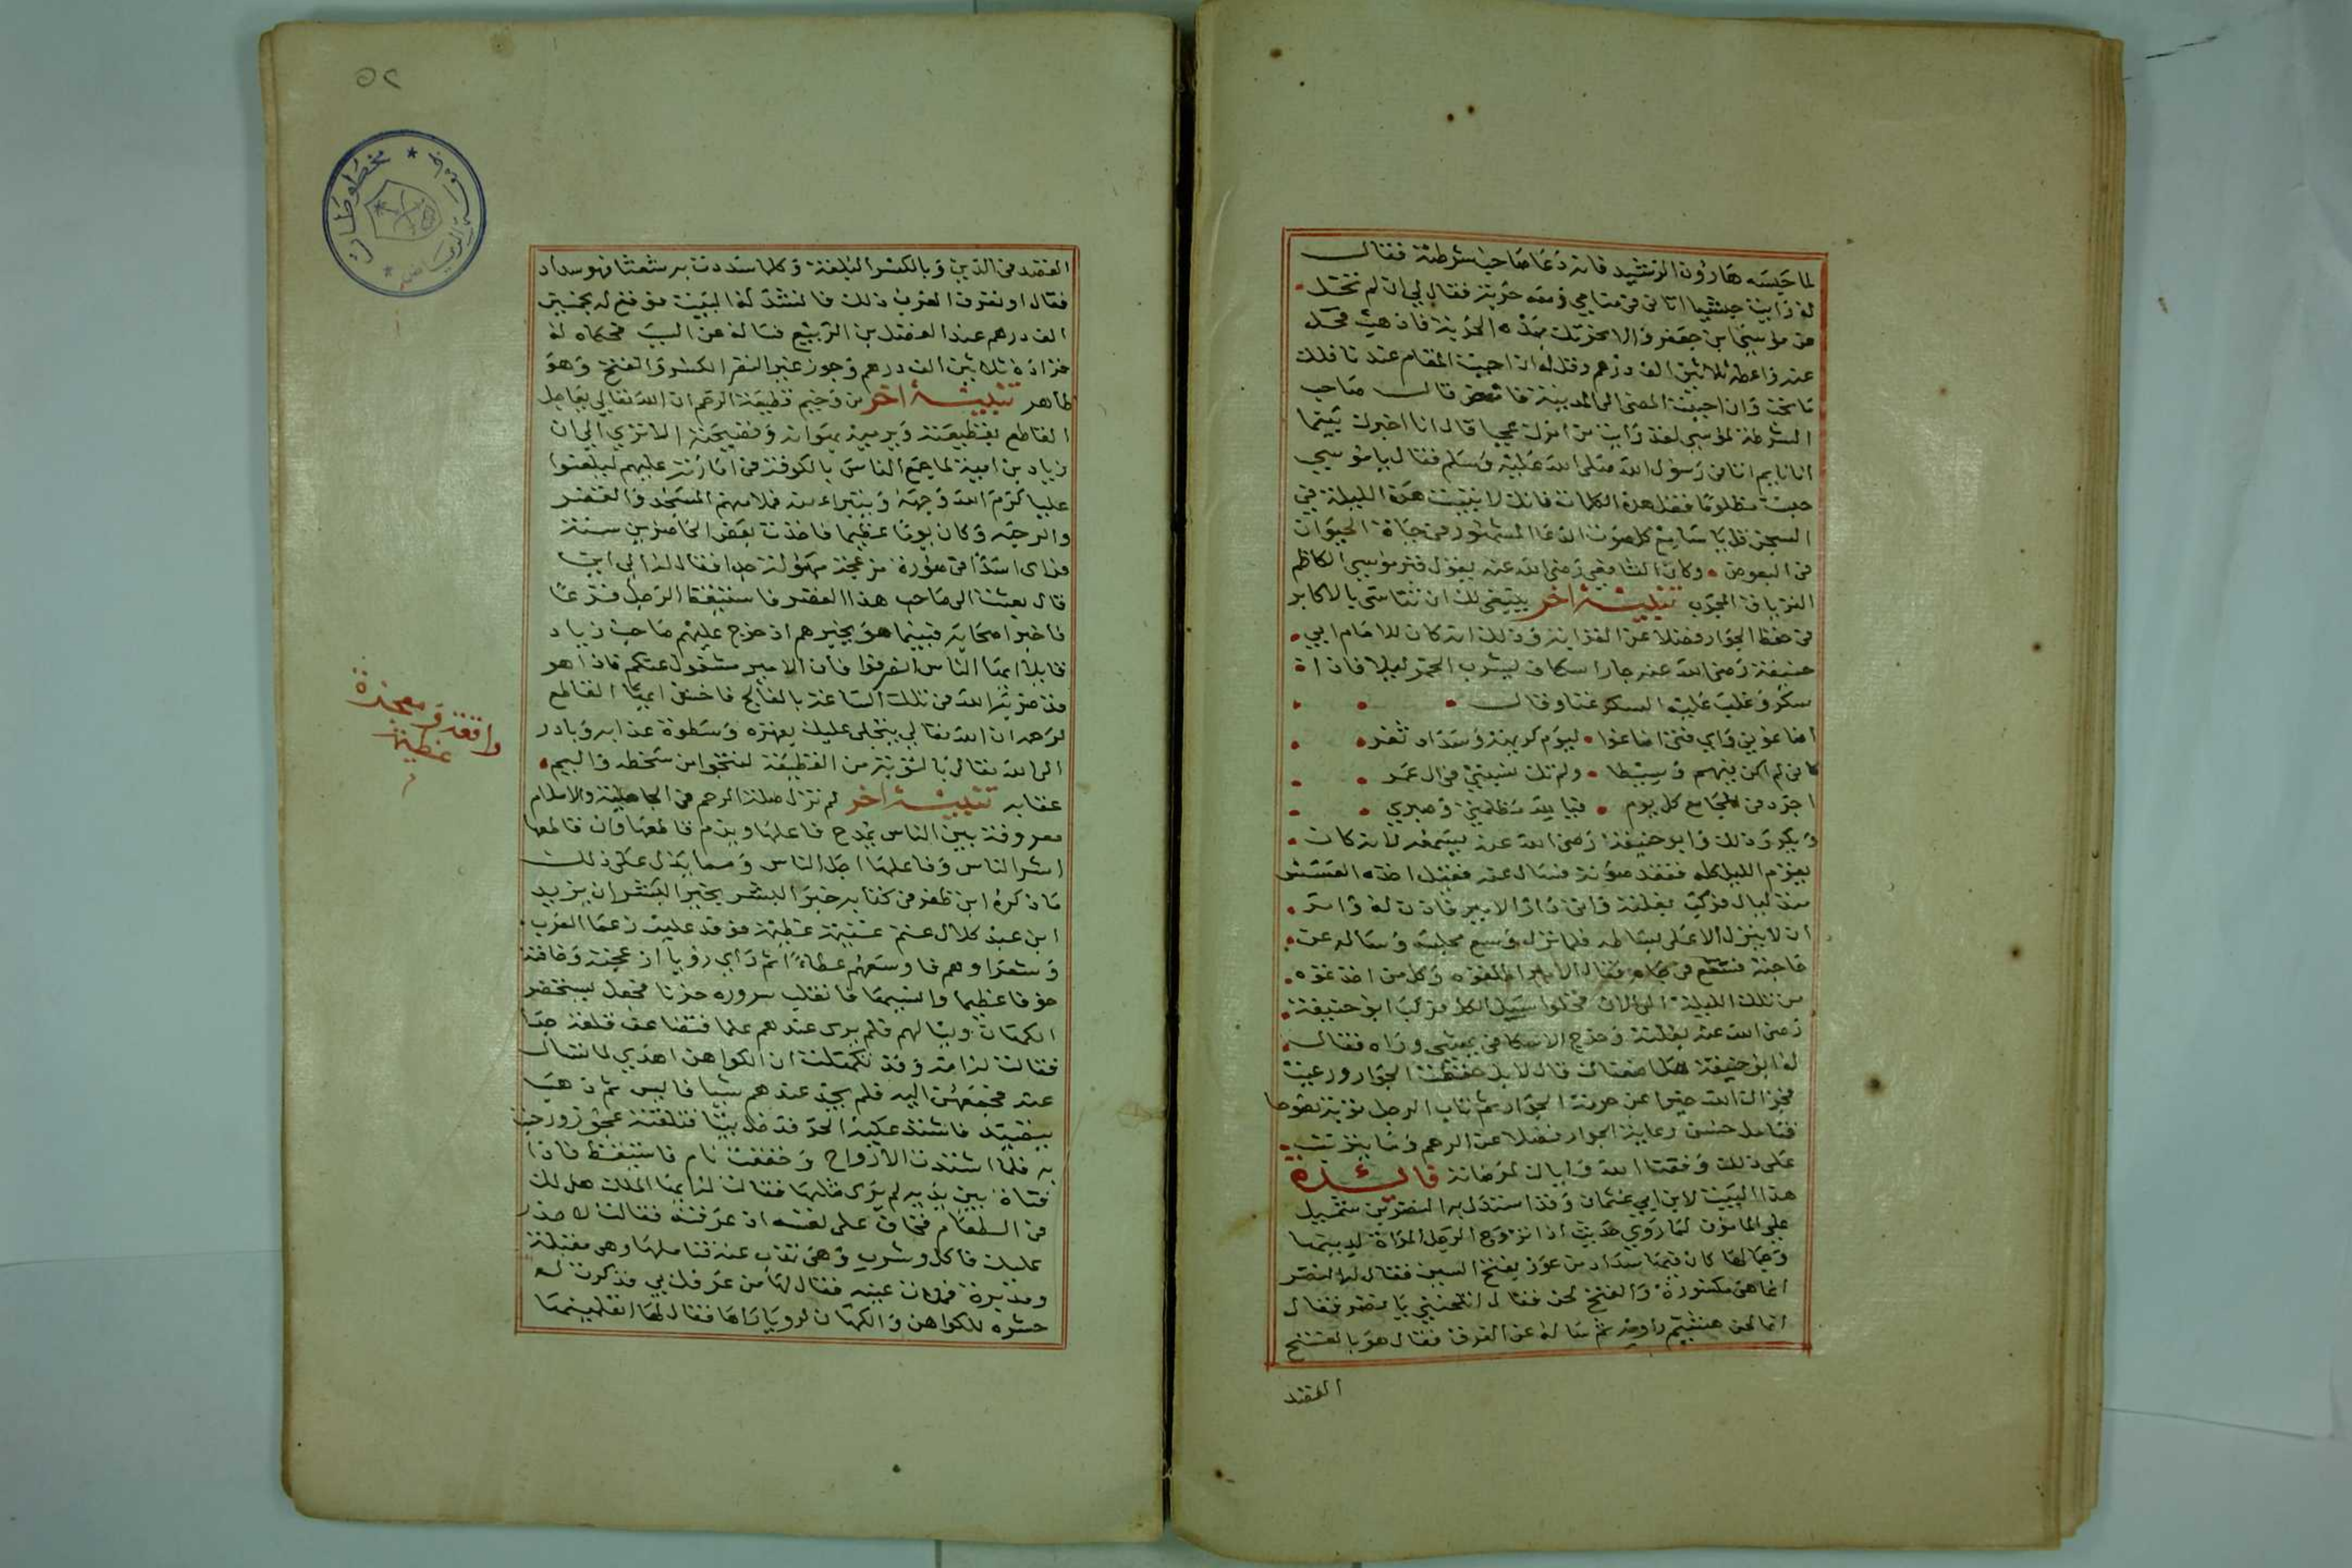 لما حبسه هارون الرشيد فانه دعا صاحب شرطته فقال
له رايت حبشيا اتاني في منامي ومعه حربة فقال لي ان لم تخل
عن موسى بن جعفر والا نحرتك بهذه الحربة فاذهب فخل
عنه واعطه ثلاثين الف درهم وقل له ان احببت المقام عندنا فلك
ما تحب وان احببت المضي الى المدينة فامض قال صاحب
الشرطة لموسى لقد رايت من امرك عجبا قال انا اخبرك بينما
انا نايم اتاني رسول الله صلى الله عليه وسلم فقال يا موسى
حبست مظلوما فقل هذه الكلمات فانك لا تبيت هذه الليلة في
السجن قل يا سامع كل صوت الدعا المشهور في حياة الحيوان
في البعوض وكان الشافعي رضي الله عنه يقول قبر موسى الكاظم
الترياق المجرب تنبيه اخر ينبغي لك ان تتاسى بالاكابر
في حفظ الجوار فضلا عن القرابة وذلك انه كان للامام ابي
حنيفة رضي الله عنه جار اسكاف يشرب الخمر ليلا فاذا
سكر وغلب عليه السكر غنا وقال
اضاعوني واي فتى اضاعوا ليوم كريهة وسداد ثغر
كاني لم اكن فيهم وسيطا ولم تك نسبتي في ال عمر
اجرد في المجامع كل يوم فيا لله مظلمتي وصبري
ويكرر ذلك وابو حنيفة رضي الله عنه يسمعه لانه كان
يقوم الليل كله ففقد صوته فسال عنه فقيل اخذه العسس
منذ ليال فركب بغلته واتى دار الامير فاذن له وامر
ان لا ينزل الا على بساطه فلما نزل وسع مجلسه وساله عن
حاجته فشفع في جاره فقال الامير اطلقوه وكل من اخذ نحوه
من تلك الليلة الى الان فخلوا سبيل الكل فركب ابو حنيفة
رضي الله عنه بغلته وخرج الاسكافي يمشي وراه فقال
له ابو حنيفة هل اضعناك قال لا بل حفظت الجوار ورعيت
فجزاك الله خيرا عن حرمة الجوار ثم تاب الرجل توبة نصوحا
فتامل حسن رعاية الجوار فضلا عن الرحم وما يترتب
على ذلك وفقنا الله واياك لمرضاته فائدة
هذا البيت لابن ابي عثمان وقد استدل به النضر بن شميل
على المامون لما روي حديث اذا تزوج الرجل المراة لدينها
وجمالها كان فيها سداد من عوز بفتح السين فقال له النضر
انما هي مكسورة والفتح لحن فقال اتلحنني يا نضر فقال
انما لحن هشيم راويه ثم ساله عن الفرق فقال هو بالفتح
القصد
القصد في الدين وبالكسر البلغة وكلما سددت به شعثا فهو سداد
فقال او تعرف العرب ذلك فانشد له البيت فوقع له بخمسين
الف درهم عند الفضل بن الربيع فساله عن السبب فحكاه له
فزاده ثلاثين الف درهم وجوز غير النضر الكسر والفتح وهو
ظاهر تنبيه اخر من وخيم قطيعة الرحم ان الله تعالى يعاجل
القاطع بقطيعته ويرميه بهوانه وفضيحته الا ترى الى ان
زياد بن امية لما جمع الناس بالكوفة في امارته عليهم ليلعنوا
عليا كرم الله وجهه وبتبراء منه فملا منهم المسجد والقصر
والرحبه وكان يوما عظيما فاخذت بعض الحاضرين سنة
فراى اسدا في صورة مزعجة مهولة جدا فقال له الى اين
قال بعثت الى صاحب هذا القصر فاستيقظ الرجل فزعا
فاخبر اصحابه فبينما هو يخبرهم اذ خرج عليهم صاحب زياد
قايلا ايها الناس انصرفوا فان الامير مشغول عنكم فاذا هو
قد ضربه الله في تلك الساعة بالفالج فاخش ايها القاطع
لرحمه ان الله تعالى يتجلى عليك بقهره وسطوة عذابه وبادر
الى الله تعالى بالتوبة من القطيعة لتنجوا من سخطه واليم
عقابه تنبيه اخر لم تزل صلة الرحم في الجاهلية والاسلام
معروفة بين الناس يمدح فاعلها ويذم قاطعها وان قاطعها
اشر الناس وفاعلها اجل الناس ومما يدل على ذلك
ما ذكره ابن ظفر في كتابه خير البشر بخير البشر ان يزيد
ابن عبد كلال غنم غنيمة عظيمة فوفد عليه زعما العرب
وشعراوهم فاوسعهم عطاء ثم راى رؤيا ازعجته وخافته
خوفا عظيما وانسيها فانقلب سروره حزنا فجعل يستحضر
الكهان ويسالهم فلم يرى عندهم علما فتضاعف قلقه جدا
فقالت له امه وقد تكهنت ان الكواهن اهدى لما تسال
عنه فجمعهن اليه فلم يجد عندهم شيا فايس ثم ذهب
يتصيد فاشتد عليه الحر فدخل بيتا فتلقته عجوز ورحبت
به فلما اشتدت الارواح وخففت نام فاستيقظ فاذا
فتاة بين يديه لم يرى مثلها فقالت له ايها الملك هل لك
في الطعام فخاف على نفسه ان عرفته فقالت لا حذر
عليك فاكل وشرب وهي تقرب عنه فتاملها وهي مقبلة
ومدبرة فملات عينه فقال لها من عرفك بي فذكرت له
حشره للكواهن والكهان لرويا راها فقال لها اتعلمينها
واقفة ومعجزة
عظيمة
مخطوطات
٥٢